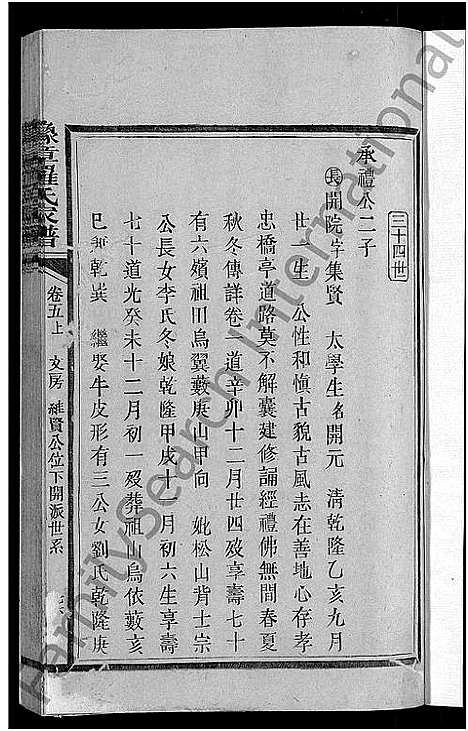 三十四世
承禮公二子
長開院字集賢 太學生名開元 清乾隆乙亥九月
廿一生 公性和慎古貌古風志在善地心存孝
忠橋亭道路莫不解囊建修誦經禮佛無間春夏
秋冬傳詳卷一道辛卯十二月廿四歿享壽七十
有六嬪祖田烏翼藪庚山甲向 妣松山背士宗
公長女李氏冬娘乾隆甲戌十一月初六生享壽
七十道光癸未十二月初一歿葬祖山烏依藪亥
巳兼乾巽 繼娶牛皮形有三公女劉氏乾隆庚
豫章羅氏家譜
卷五上 文房 維賢公位下開派世系
FamilySearch International